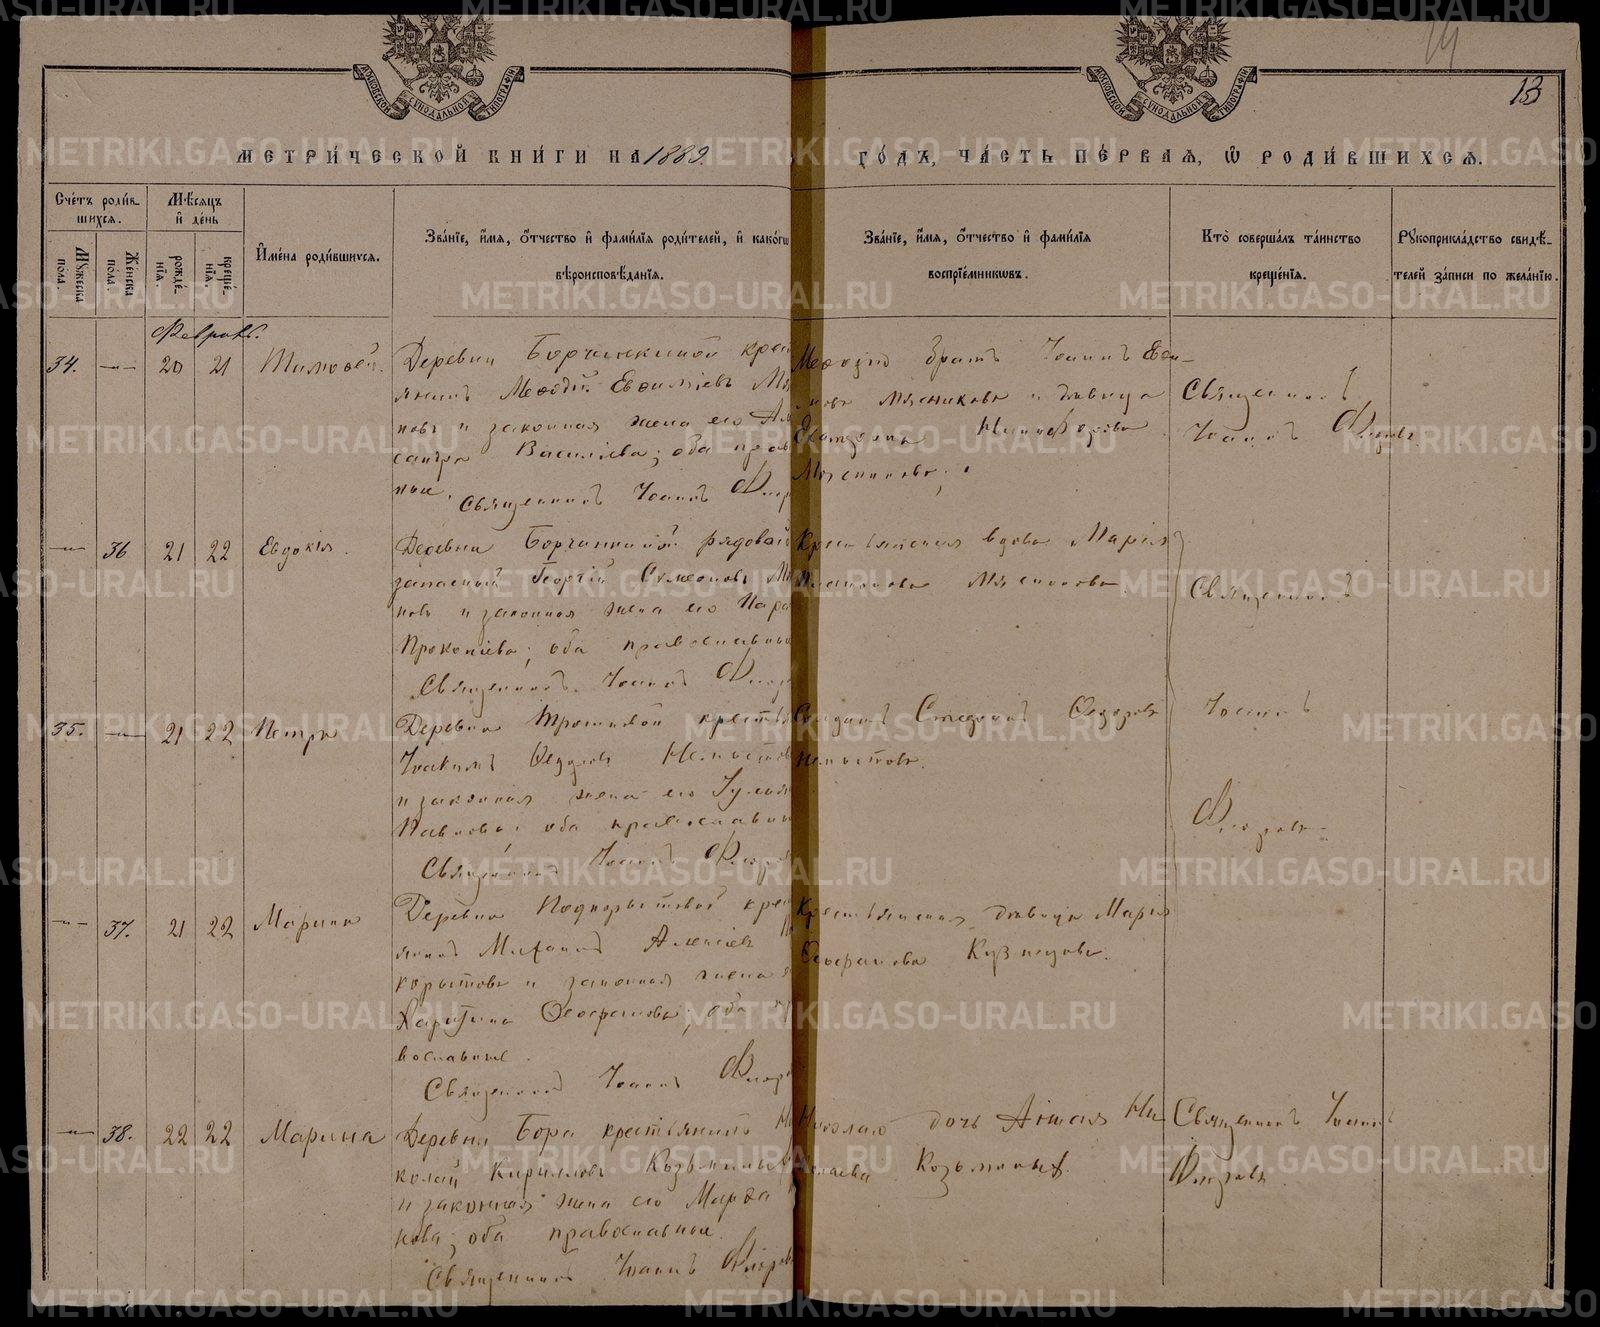 13
МЕТРИ́ЧЕСКОЙ КНИ́ГИ НА 1889. ГО́ДЪ, ЧА́СТЬ ПЕ́РВАЯ, Ѡ РОДИ́ВШИХСЯ.
Сче́тъ роди́в-
шихся.
Му́жеска по́ла.
Же́нска по́ла.
Мѣ́сяцъ и де́нь
рожде́-
нїя.
креще́-
нїя.
И҆мена̀ роди́вшихся.
Зва́нїе, и҆́мя, ѻ҆́тчество и҆ фами́лїя роди́телей, и҆ како́гѡ
вѣроисповѣ́данїя.
Зва́нїе, и҆́мя, ѻ҆́тчество и҆ фами́лїя
воспрїе́мникѡвъ.
Кто̀ соверша́лъ та́инство
креще́нїя.
Рукоприкла́дство свидѣ́-
телей за́писи по жела́нїю.
Февраль.
34. — 20 21 Тимофей.
Деревни Борчанкиной крес
янинъ Меѳодій Евѳиміевъ Мя
новъ и законная жена его Але
сандра Васильева; оба прав
ные.
Священникъ Іоаннъ Флор
Меѳодію братъ Іоаннъ Евѳи-
мовъ Мясниковъ и дѣвица
Екатерина Никифорова
Мясникова;
Священникъ
Іоаннъ Флоровъ
— 36 21 22 Евдокія.
Деревни Борчанкиной рядовой
запасной Георгій Симеоновъ Мя
новъ и законная жена его Пара
Прокопіева; оба православные
Священникъ Іоаннъ Флор
Крестьянская вдова Марія
Мясникова
Священникъ
35. — 21 22 Петръ
Деревни Трошковой крестья
Іоакимъ Ѳедоровъ
и законная жена его Іулія
Павлова; оба православные
Священникъ Іоаннъ Флоро
Солдатъ Стефанъ Ѳедоровъ
Іоаннъ
Флоровъ
— 37. 21 22 Марина
Деревни Подкорытовой крес
янинъ Михаилъ Алексіевъ По
корытовъ и законная жена е
Харитина Ѳеофанова; оба пр
вославные.
Священникъ Іоаннъ Флор
Крестьянская дѣвица Марія
Ѳеофанова Кузнецова.
— 38. 22 22 Марина
Деревни Бора крестьянинъ Ни
колай Кирилловъ Козьминых
и законная жена его Марѳа
нова; оба православные.
Священникъ Іоаннъ Флоров
Николаю дочь Агнія Ни
колаева Козьминых.
Священникъ Іоаннъ
Флоровъ